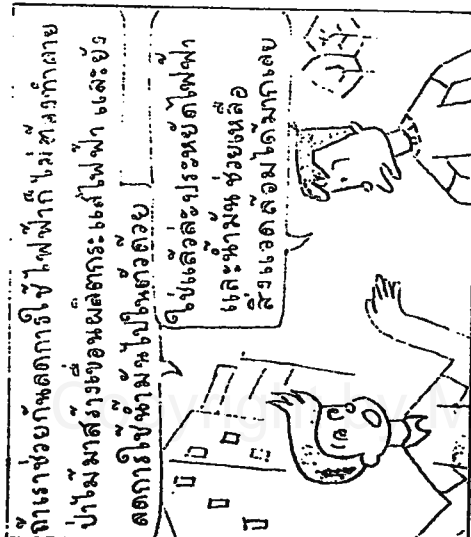 ถ้าเราช่วยกันลดการใช้ไฟฟ้าก็ไม่ต้องทำลาย
ป่าไม้มาสร้างเขื่อนผลิตกระแสไฟฟ้า และยัง
ลดการใช้น้ำมันไปในตัวด้วย
ใช่แล้วล่ะประหยัดไฟฟ้า
และน้ำมัน ช่วยเหลือ
สิ่งแวดล้อมได้มากเลย
Copyright by M